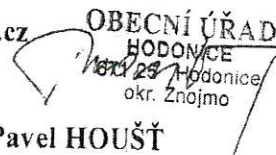 .cz
OBECNÍ ÚŘAD
HODONICE
671 25 Hodonice
okr. Znojmo
Pavel HOUŠŤ